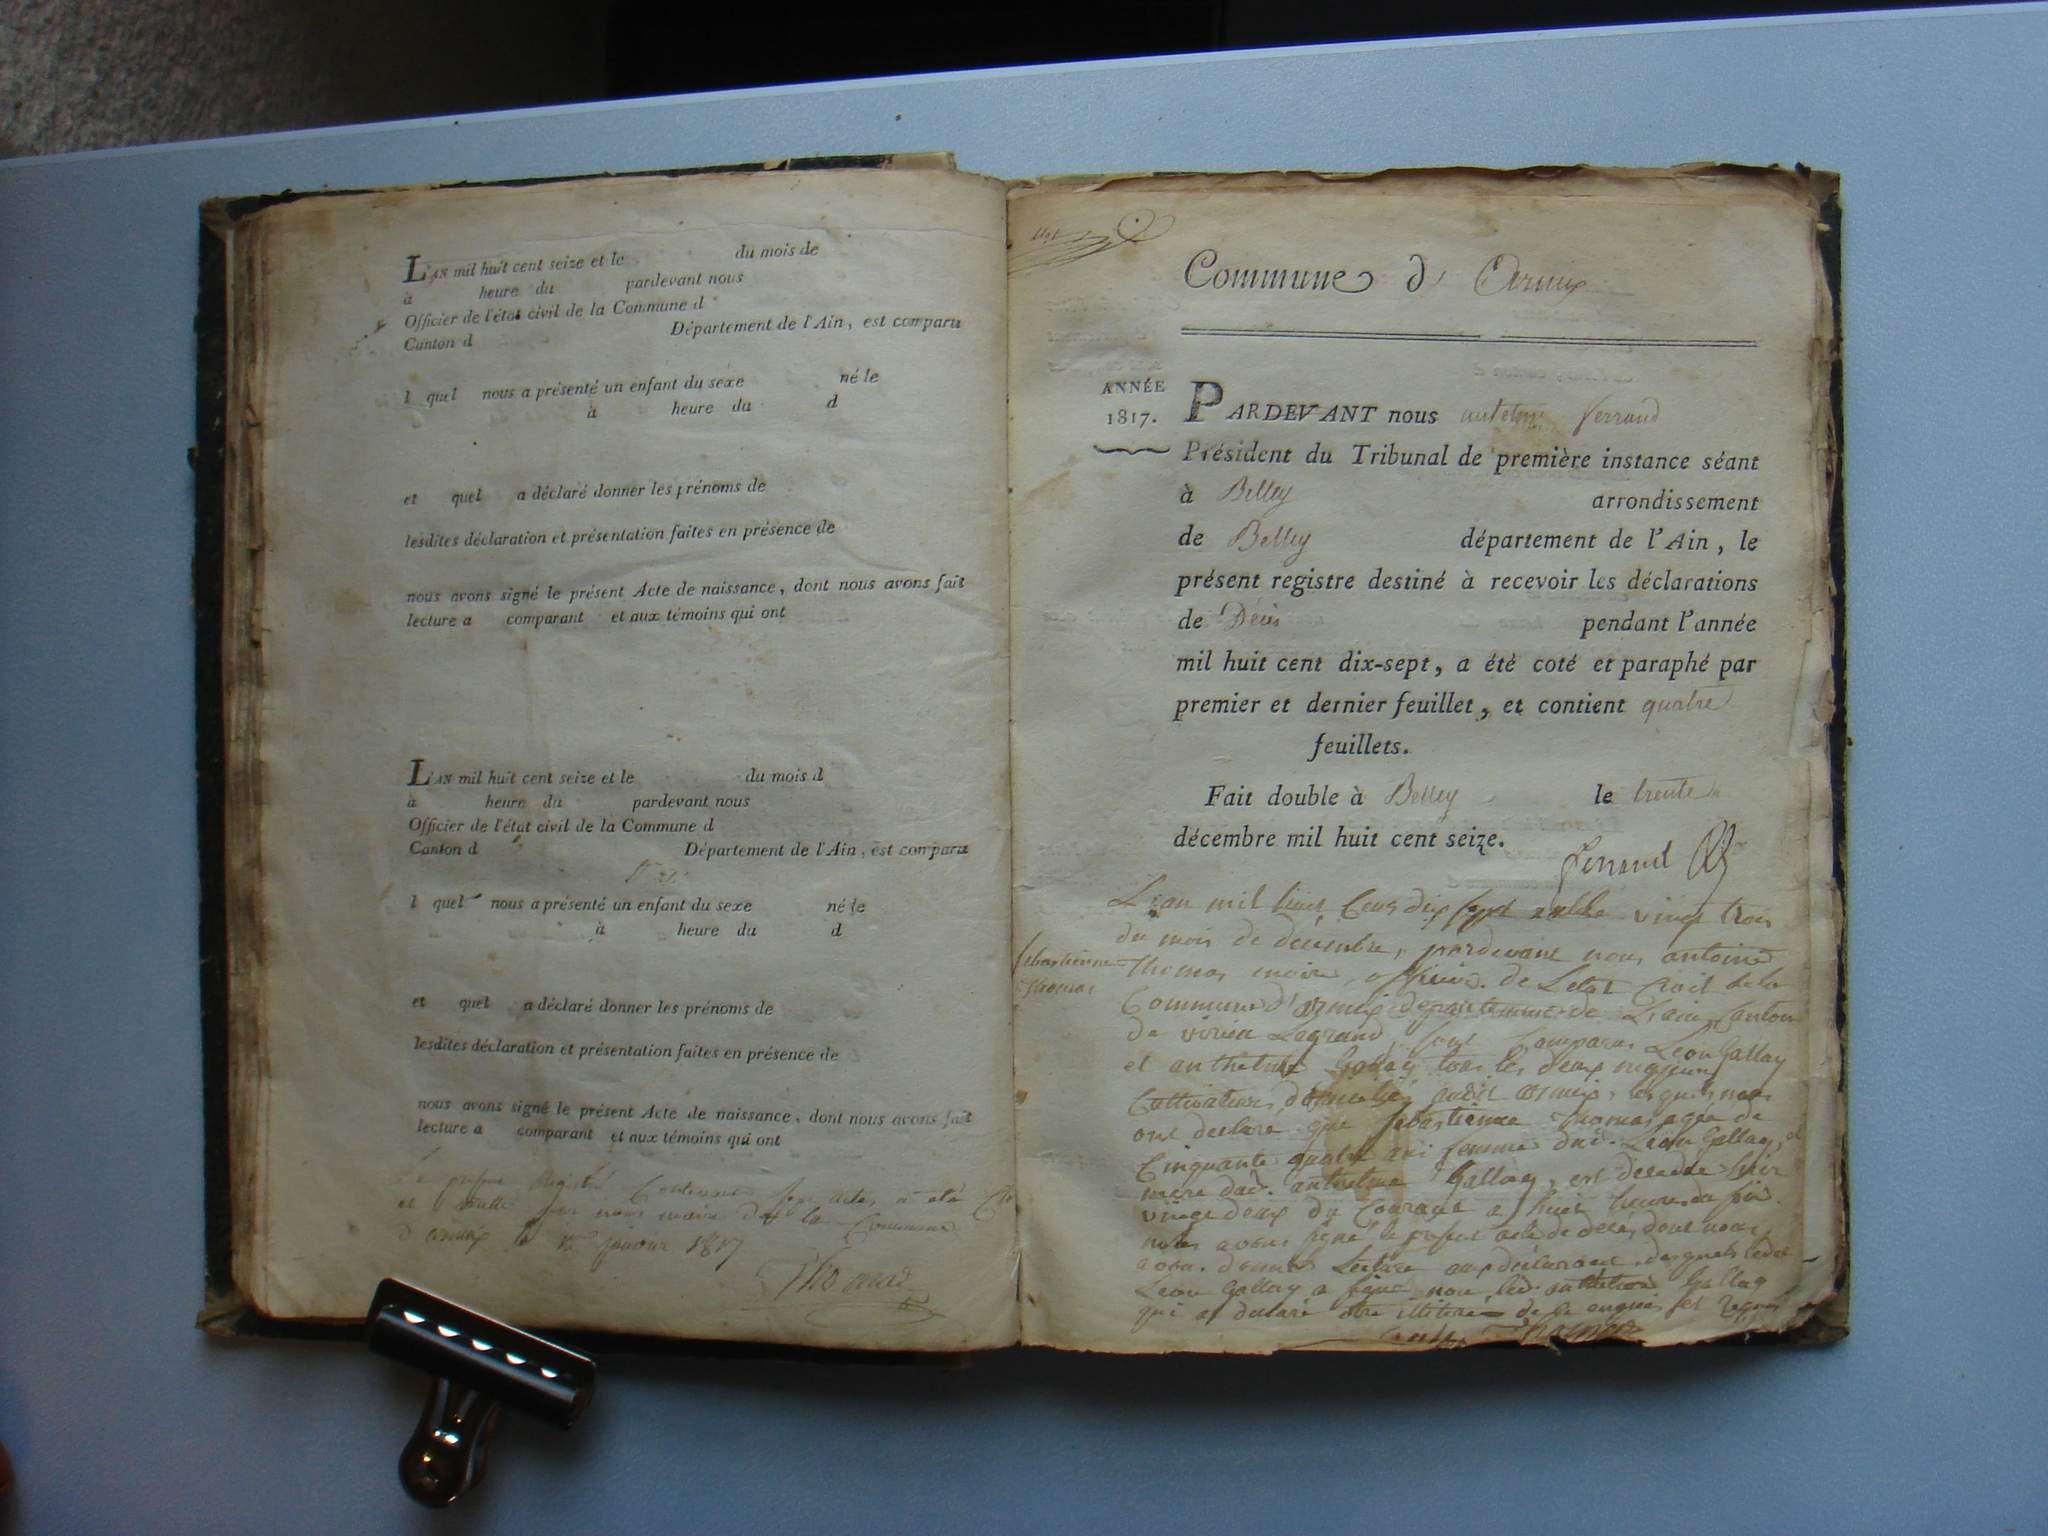 L'AN mil huit cent seize et le du mois de
à heure du pardevant nous
Officier de l'état civil de la Commune d
Canton d Département de l'Ain, est comparu
l quel nous a présenté un enfant du sexe né le
à heure du d
et quel a déclaré donner les prénoms de
lesdites déclaration et présentation faites en présence de
nous avons signé le présent Acte de naissance, dont nous avons fait
lecture a comparant et aux témoins qui ont
L'AN mil huit cent seize et le du mois d
à heure du pardevant nous
Officier de l'état civil de la Commune d
Canton d Département de l'Ain, est comparu
l quel nous a présenté un enfant du sexe né le
à heure du d
et quel a déclaré donner les prénoms de
lesdites déclaration et présentation faites en présence de
nous avons signé le présent Acte de naissance, dont nous avons fait
lecture a comparant et aux témoins qui ont
Le present Registre Contenant sept actes a été Clo
et par nous maire de la Commune
d'armix le 1er janvier 1817
Thomas
Commune d'Armix
ANNÉE
1817.
PARDEVANT nous antelme ferrand
Président du Tribunal de première instance séant
à Belley arrondissement
de Belley département de l'Ain, le
présent registre destiné à recevoir les déclarations
de Décès pendant l'année
mil huit cent dix-sept, a été coté et paraphé par
premier et dernier feuillet, et contient quatre
feuillets.
Fait double à Belley le trente
décembre mil huit cent seize.
ferrand
Sebastienne
Thomas
L'an mil huit Cens dix sept et le vingt trois
du mois de décembre, pardevant nous antoine
Thomas maire, officier de Letat Civil de la
Commune d'armix departement de L'ain, Canton
de virieu Legrand, sont Comparus Leon Gallay
et anthelme Gallay tous les deux majeurs
Cultivateurs domiciliés audit armix, lesquels nous
ont déclaré que Sebastienne Thomas agée de
Cinquante quatre ans femme dud. Léon Gallay, et
mere dud. anthelme Gallay, est decedée hier
vingt deux du Courant a huit heures du soir
nous avons signé le present acte de deces, dont nous
avons donné Lecture aux déclarants, desquels ledit
Leon Gallay a signé non led. anthelme Gallay
qui a declaré etre illitere de ce enquis et requis
Thomas